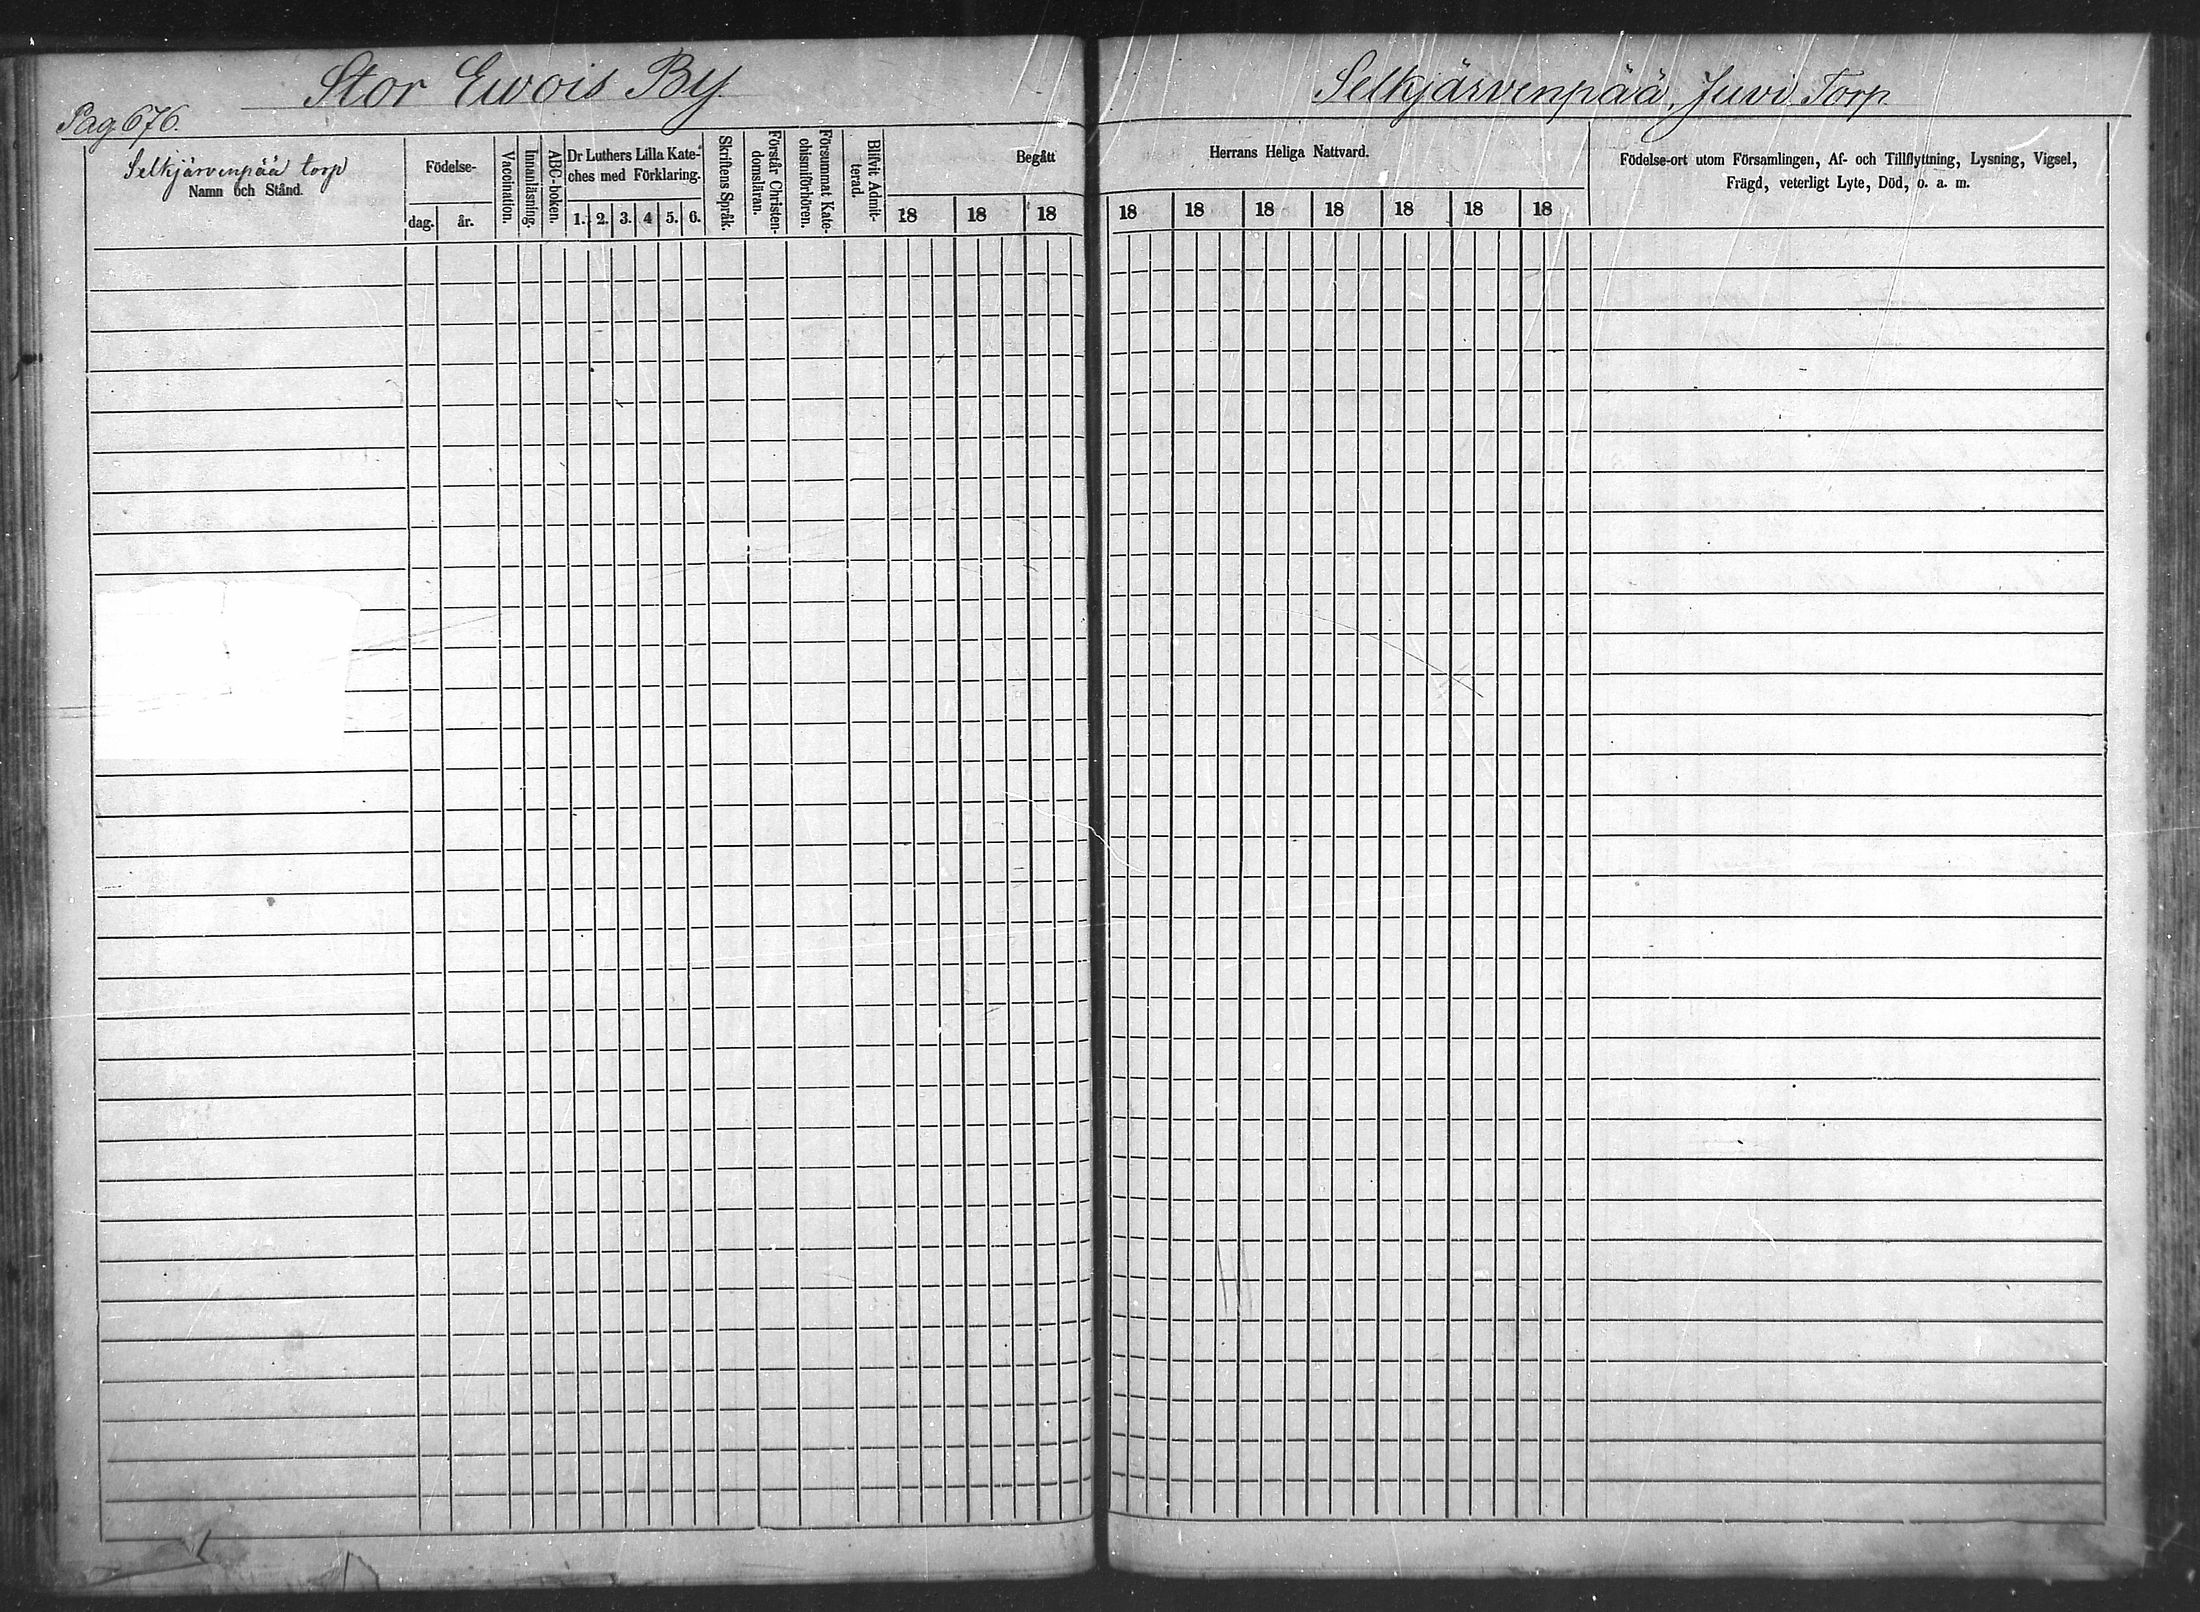 Stor Ewois By
Selkjärvenpää, Juvi Torp
Pag 676.
Selkjärvenpää torp
Namn och Stånd.
Födelse-
dag.
år.
Vaccination.
Innanläsning.
ABC-boken.
Dr Luthers Lilla Kate-
ches med Förklaring.
1. 2. 3. 4 5. 6.
Skriftens Språk.
Förstår Christen-
domsläran.
Försummat Kate-
chismiförhören.
Blifvit Admit-
terad.
Begått
18 18 18
Herrans Heliga Nattvard.
18 18 18 18 18 18 18
Födelse-ort utom Församlingen, Af- och Tillflyttning, Lysning, Vigsel,
Frägd, veterligt Lyte, Död, o. a. m.